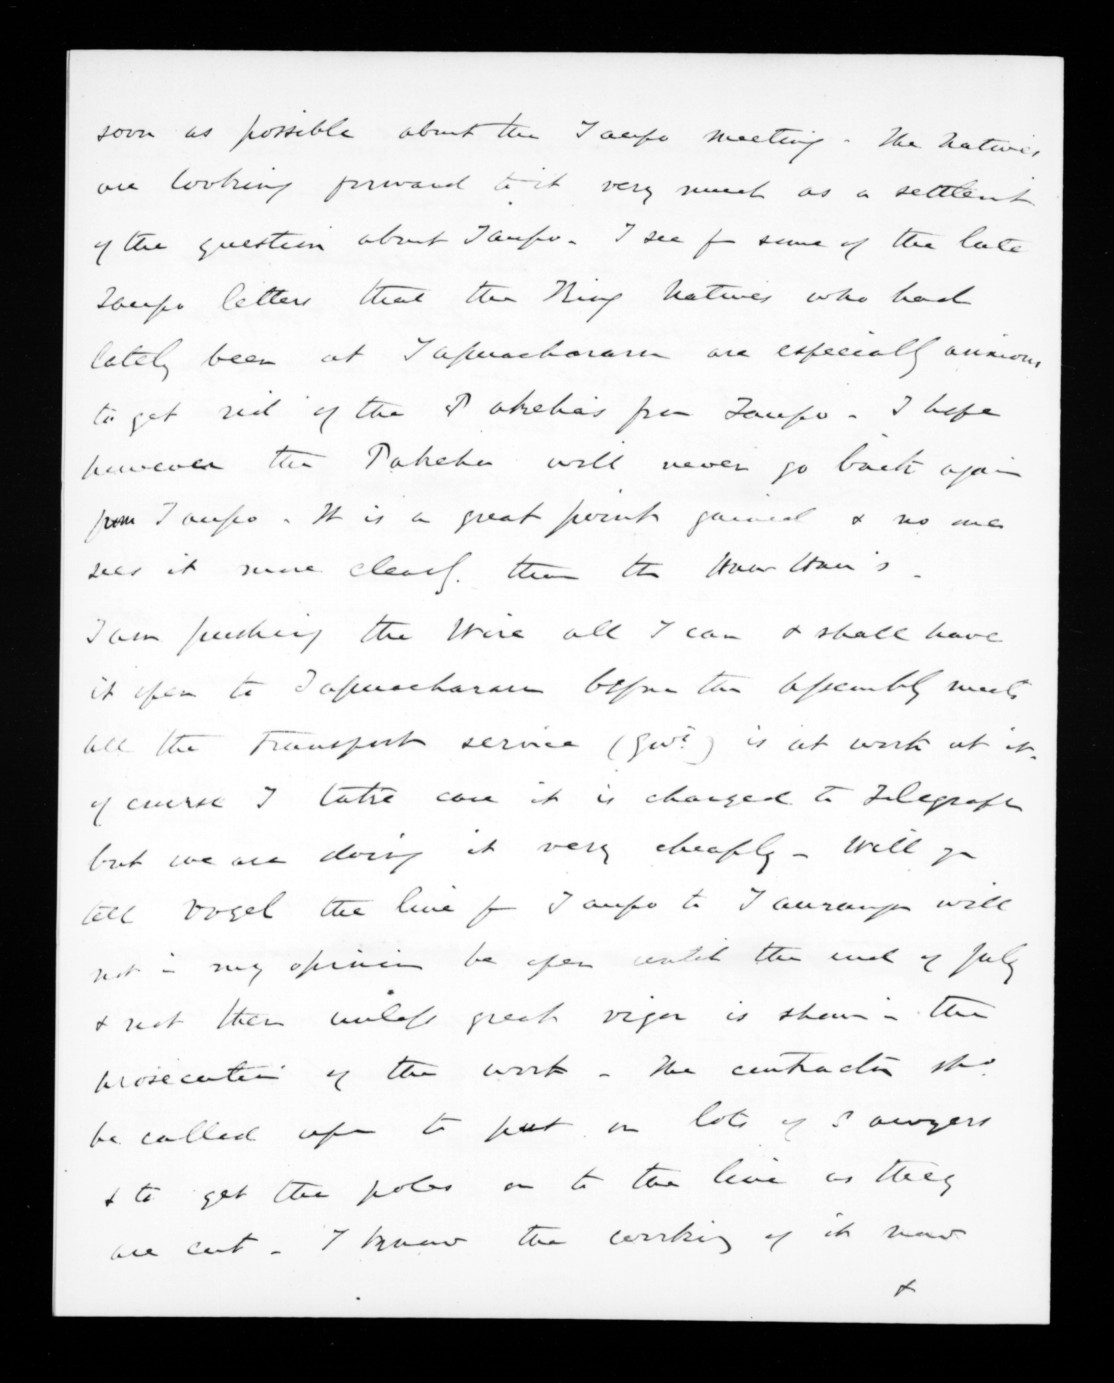 soon as possible about the Taupo meeting. The Natives
are looking forward to it very much as a settlem't
of the question about Taupo. I see fm some of the late
Taupo letters that the King Natives who had
lately been at Tapuaeharuru are especially anxious
to get rid of the Pakeha's from Taupo. I hope
however the Pakeha will never go back again
from Taupo. It is a great point gained & no one
sees it more clearly than the Hau Hau's.
I am pushing the Wire all I can & shall have
it open to Tapuaeharuru before the Assembly meets
all the Transport service (Govt) is at work at it.
of course I take care it is charged to Telegraph
but we are doing it very cheaply. Will yu
tell Vogel the line fm Taupo to Tauranga will
not in my opinion be open until the end of July
& not then unless great vigor is shown in the
prosecution of the work. The contractor shd
be called upon to put on lots of Sawyers
& to get the poles on to the line as they
are cut. I know the working of it now
&